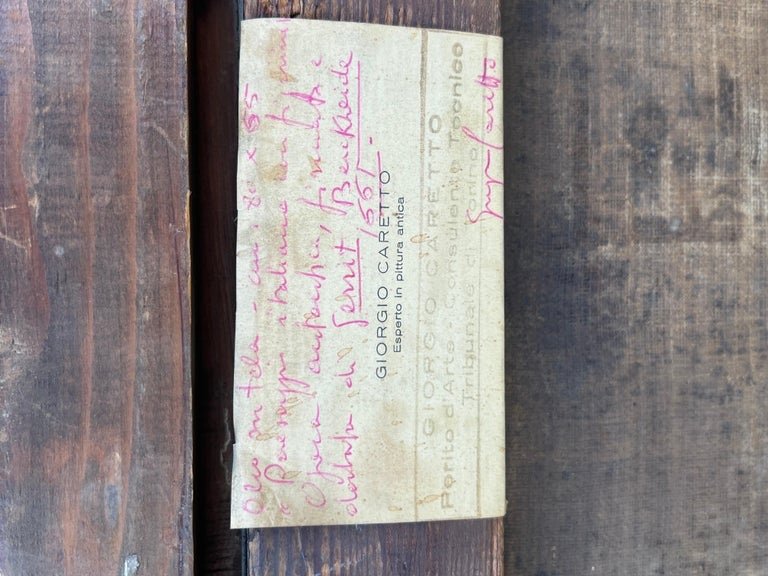 Olio su tela - cm. 80 x 65
"Paesaggio italiano con
Opera autentica, firmata e
datata di Gerrit Berckheide
1661.
GIORGIO CARETTO
Esperto in pittura antica
GIORGIO CARETTO
Perito d'Arte - Consulente Tecnico
Tribunale Torino
Giorgio Caretto